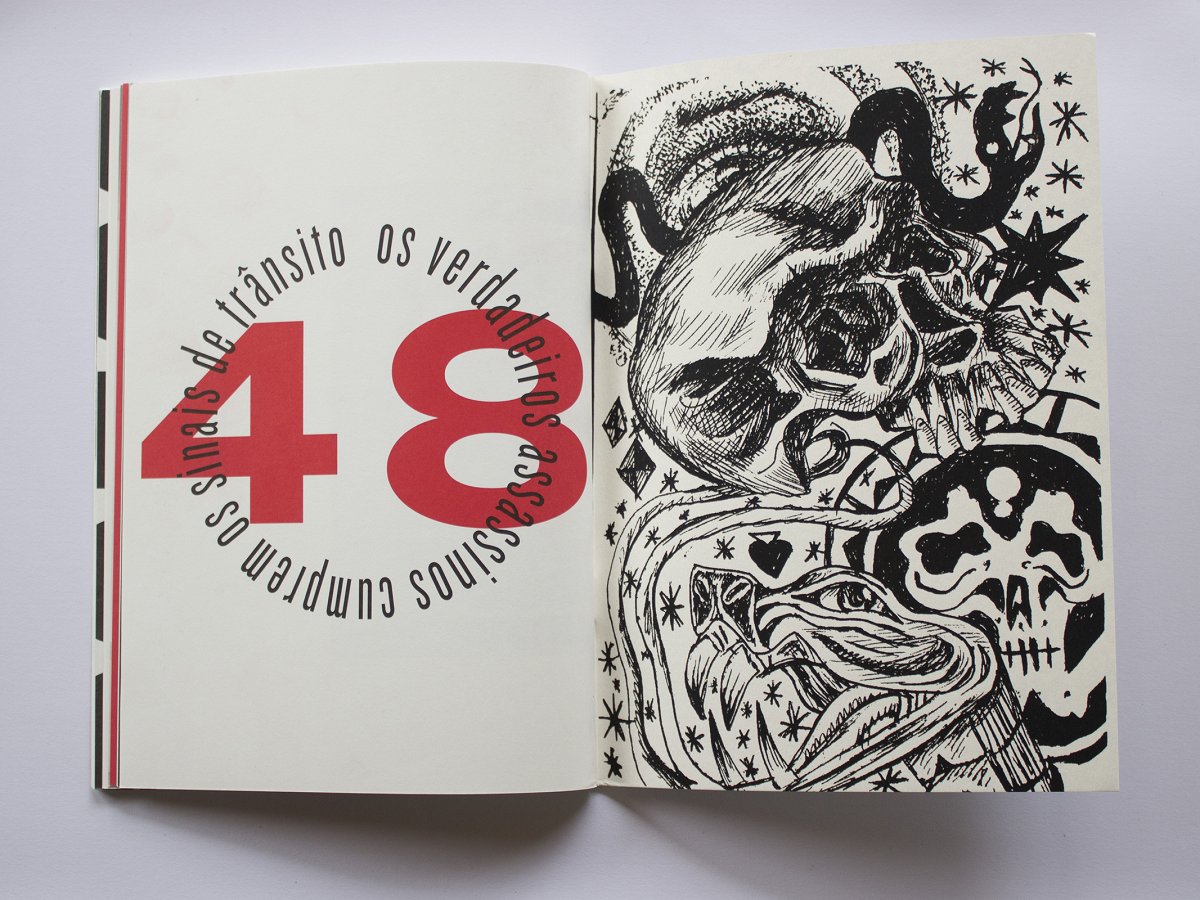 os verdadeiros assassinos cumprem os sinais de trânsito
48